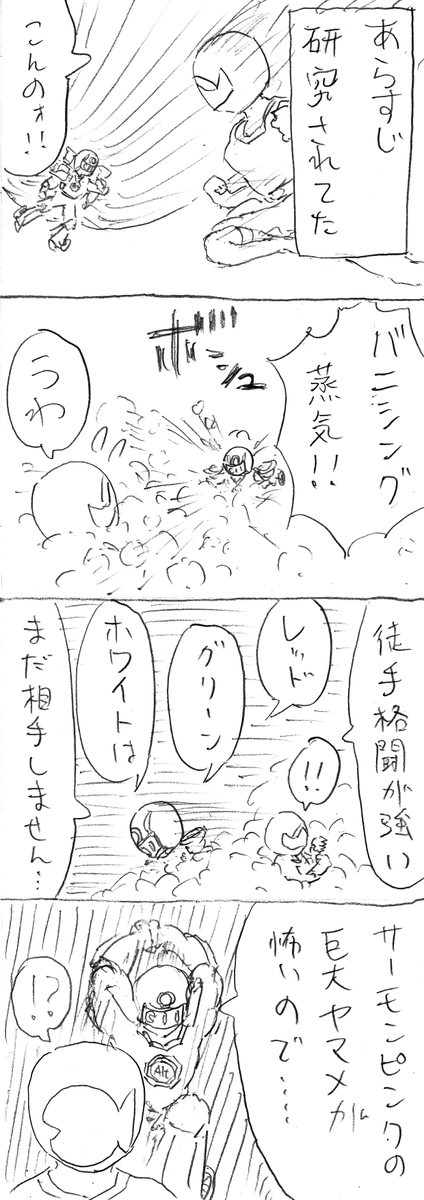 あらすじ
研究されてた
こんのォ!!
バニシング
蒸気!!
うわ
徒手格闘が強い
!!
レッド
グリーン
ホワイトは
まだ相手しません…
サーモンピンクの
巨大ヤマメが
怖いので……
Alt
!?